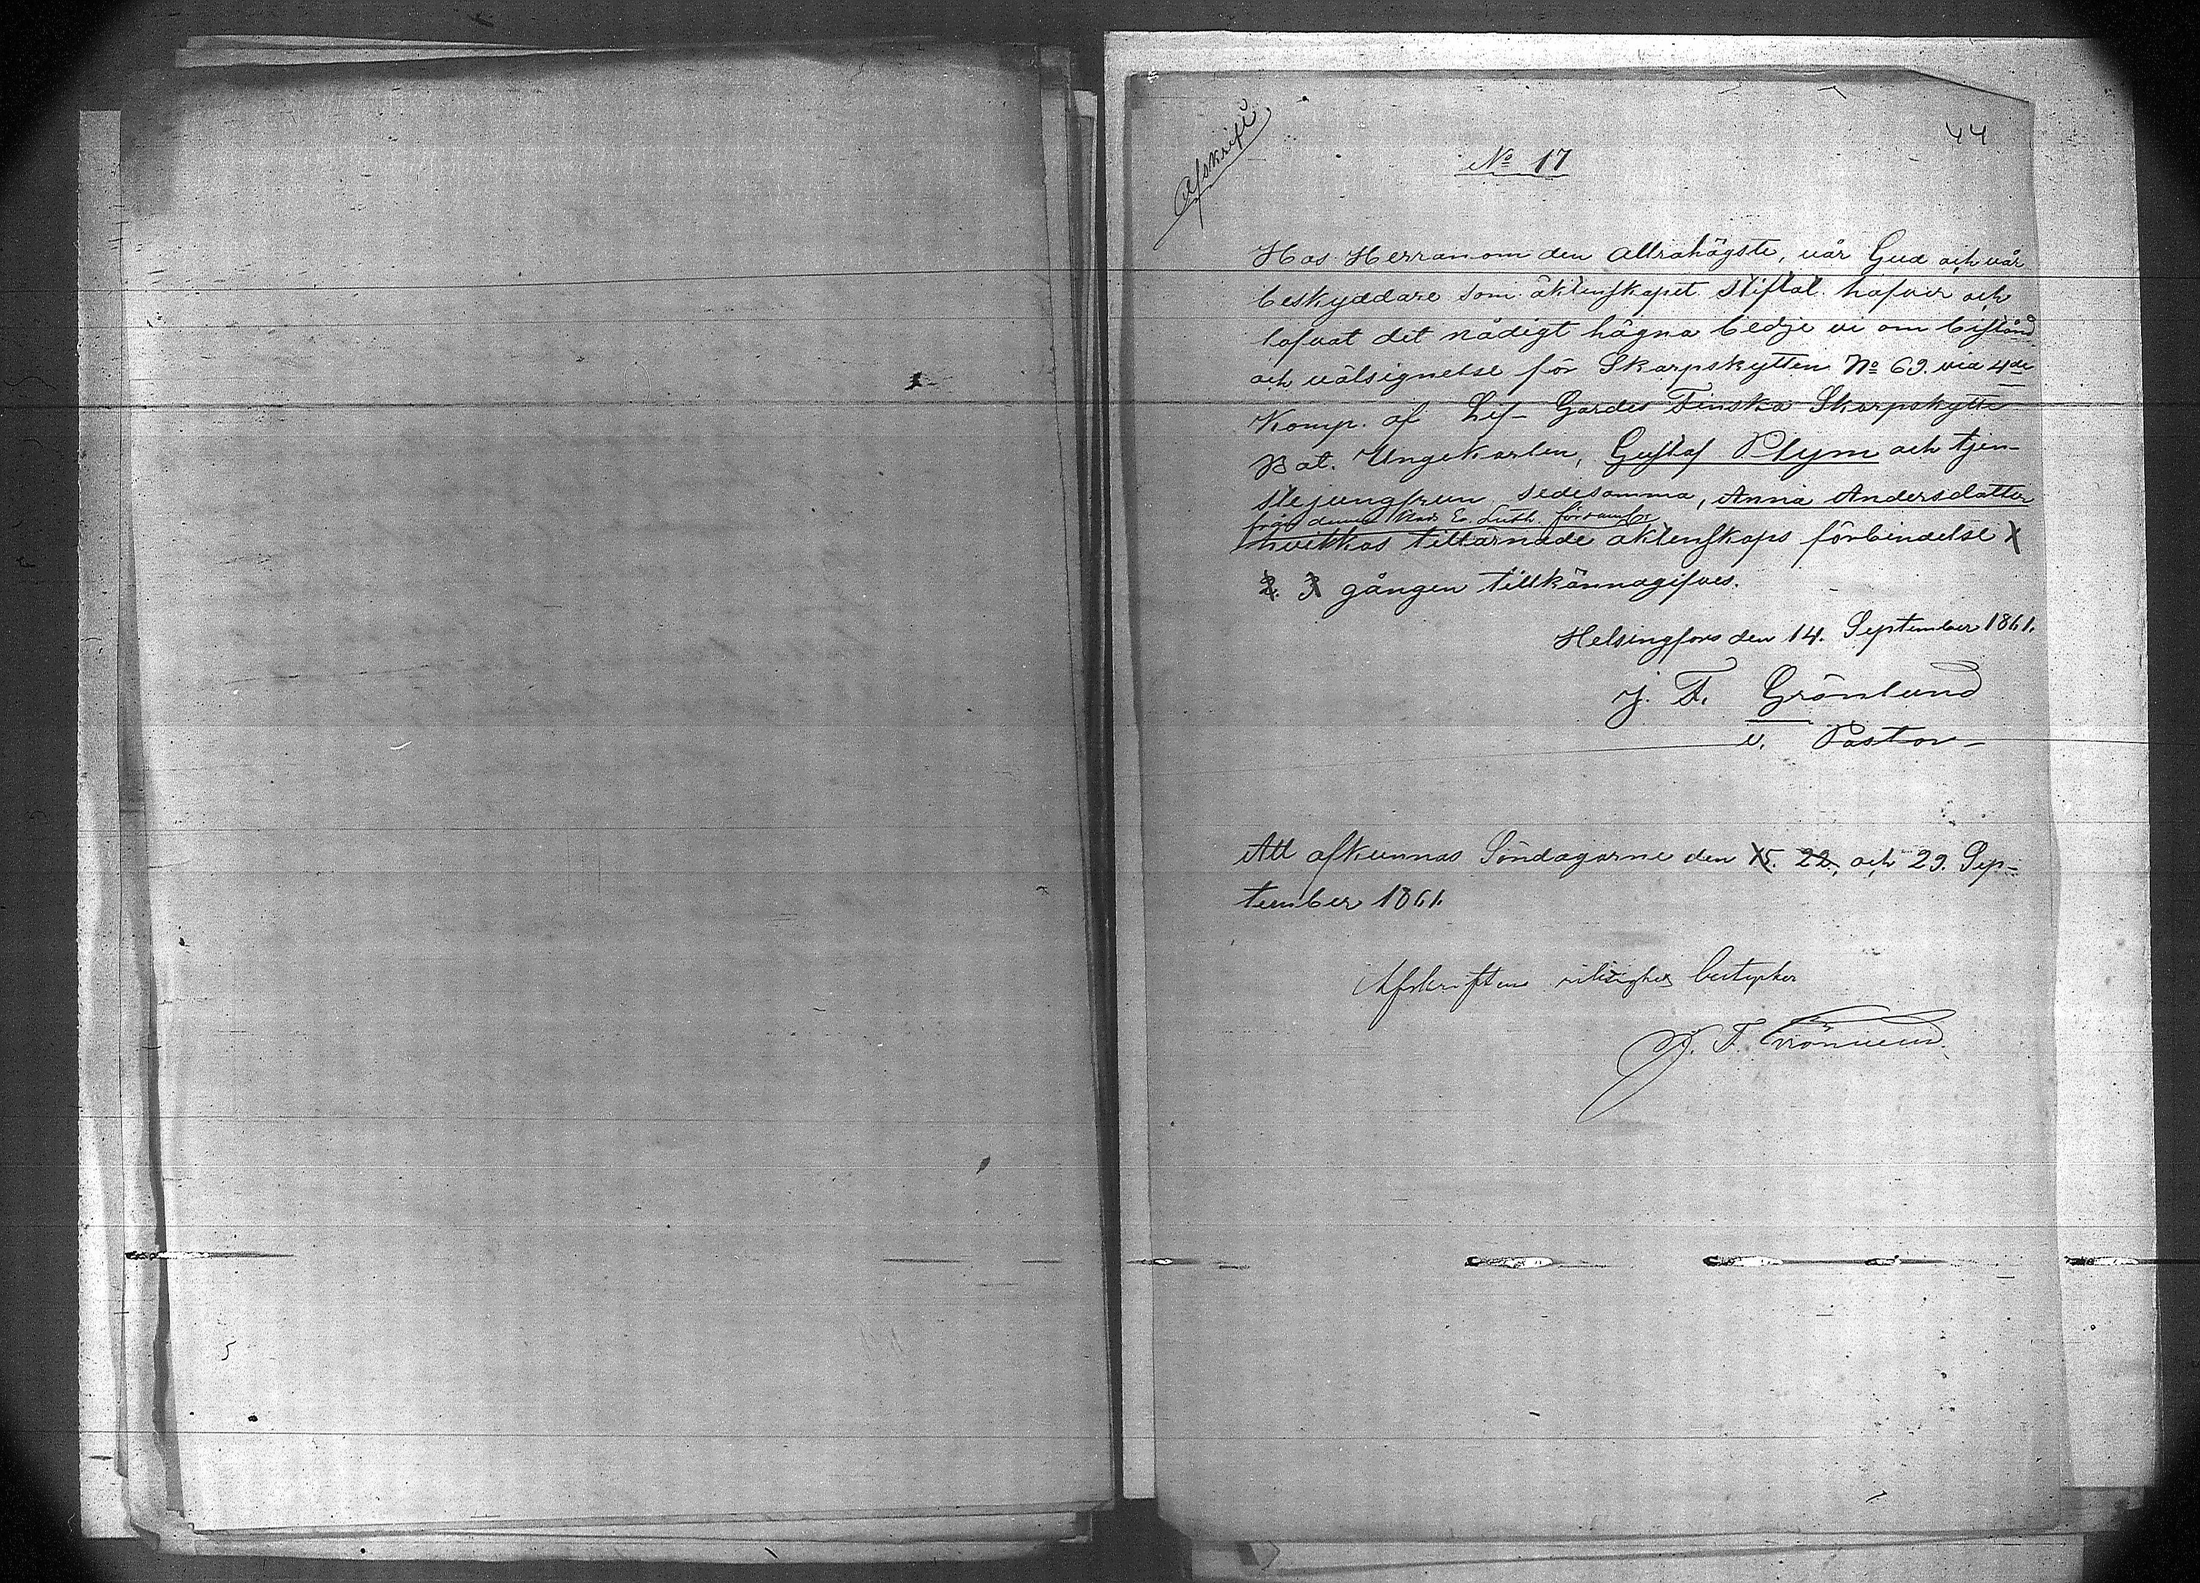 44
Afskrift
No 17
Hos Herranom den Allrahögste, vår Gud och vår
beskyddare som äktenskapet stiftat hafver och
lofvat det nådigt hägna bedje vi om bistånd
och välsignelse för Skarpskytten No 69. vid 4de
Komp. af Lif-Gardes Finska Skarpskytte
Bat. Ungekarlen, Gustaf Plym och tjen-
stejungfrun sedesamma, Anna Andersdotter
från denna Ev. Luth. församl.
hvilkas tillärnade äktenskaps förbindelse 1
2. 3 gången tillkännagifves.
Helsingfors den 14. September 1861.
J. F. Grönlund
v. Pastor
Att afkunnas Söndagarne den 15. 22. och 29. Sep-
tember 1861.
Afskriftens riktighet
J. F. Grönlund